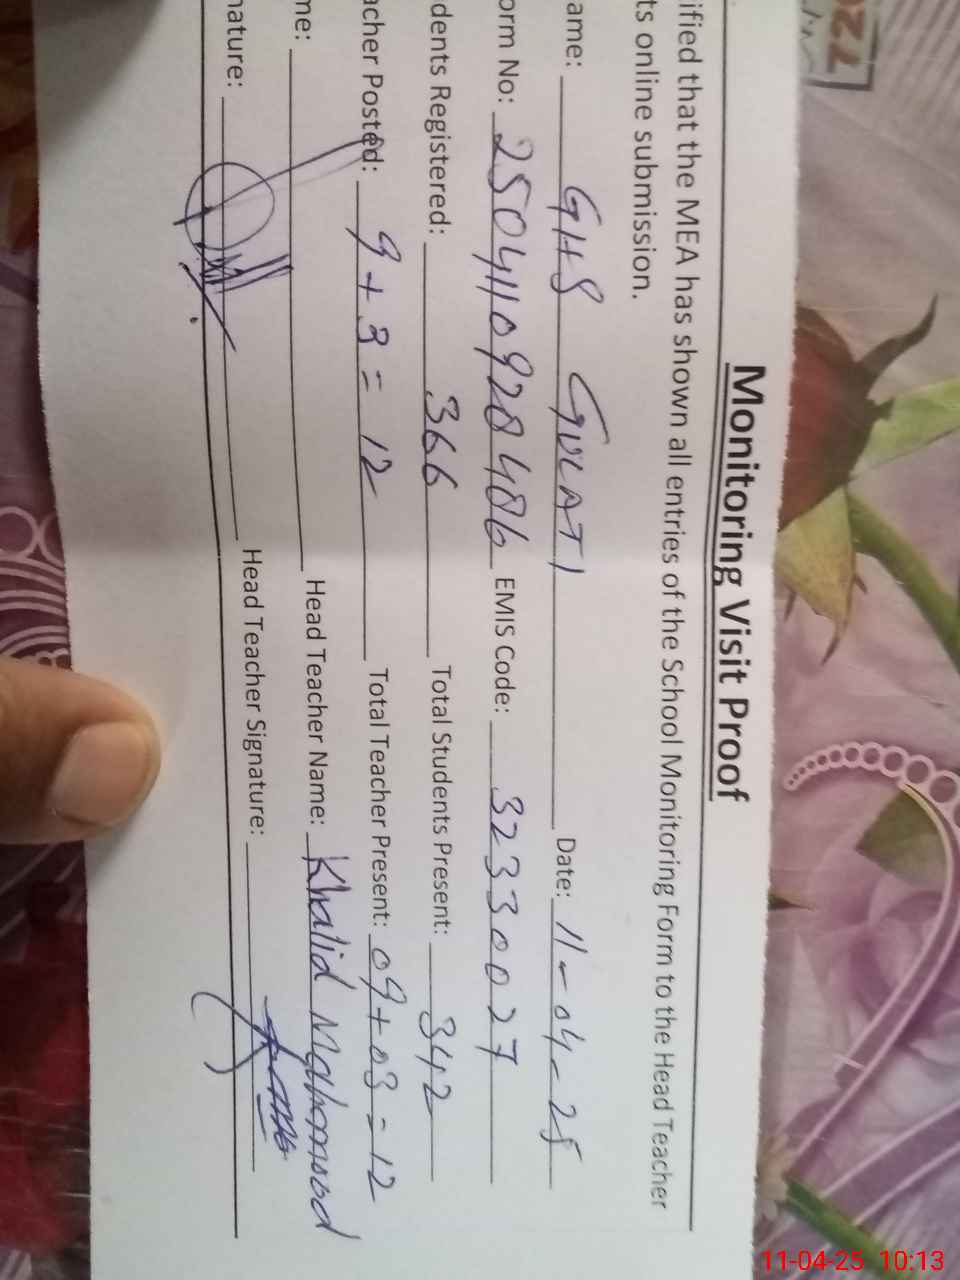 Monitoring Visit Proof
ified that the MEA has shown all entries of the School Monitoring Form to the Head Teacher
ts online submission.
ame: GHS GULATI Date: 11-04-25
orm No: 250411092848б EMIS Code: 32330027
dents Registered: 366 Total Students Present: 342
acher Posted: 9+3=12 Total Teacher Present: 09+03=12
me: Head Teacher Name: Khalid Mehmood
nature: Head Teacher Signature:
11-04-25 10:13